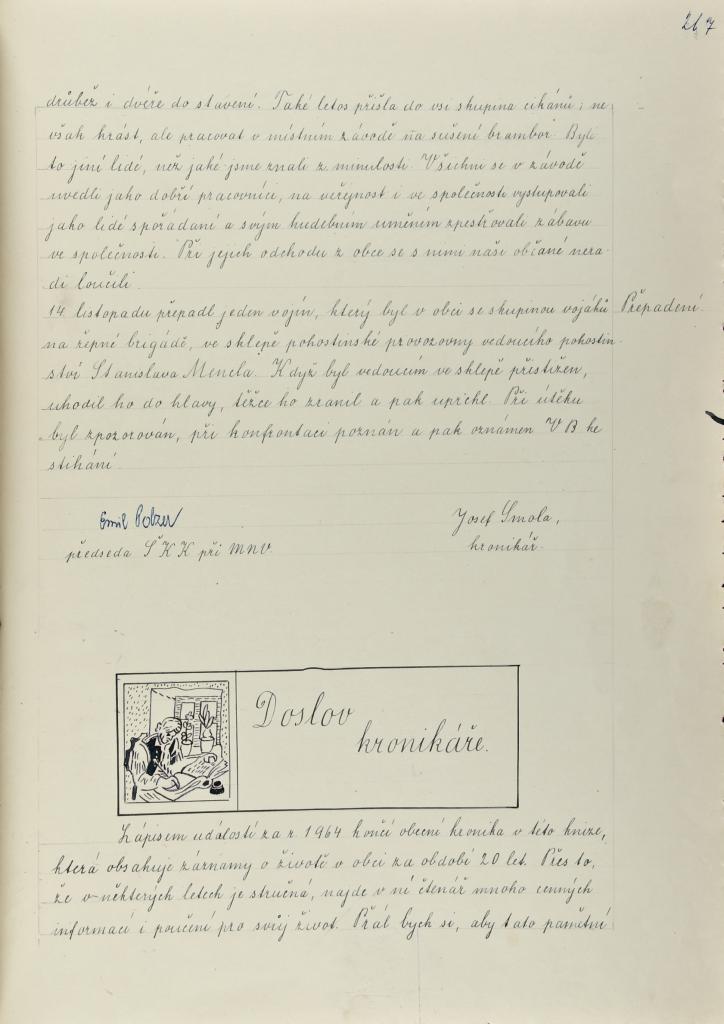 267
drůbež i dvéře do stavení. Také letos přišla do vsi skupina cikánů; ne
však krást, ale pracovat v místním závodě na sušení brambor. Byli
to jiní lidé, než jaké jsme znali z minulosti. Všichni se v závodě
uvedli jako dobří pracovníci, na veřejnost i ve společnosti vystupovali
jako lidé spořádaní a svým hudebním uměním zpestřovali zábavu
ve společnosti. Při jejich odchodu z obce se s nimi naši občané nera-
di loučili.
14. listopadu přepadl jeden vojín, který byl v obci se skupinou vojáků
Přepadení.
na řepné brigádě, ve sklepě pohostinské provozovny vedoucího pohostin-
ství Stanislava Mencla. Když byl vedoucím ve sklepě přistižen,
uhodil ho do hlavy, těžce ho zranil a pak uprchl. Při útěku
byl zpozorován, při konfrontaci poznán a pak oznámen VB ke
stíhání.
Emil Polzer
Josef Smola,
předseda ŠKK při MNV.
kronikář.
Doslov
kronikáře.
Zápisem událostí za r. 1964 končí obecní kronika v této knize,
která obsahuje záznamy o životě v obci za období 20 let. Přes to,
že v některých letech je stručná, najde v ní čtenář mnoho cenných
informací i poučení pro svůj život. Přál bych si, aby tato pamětní